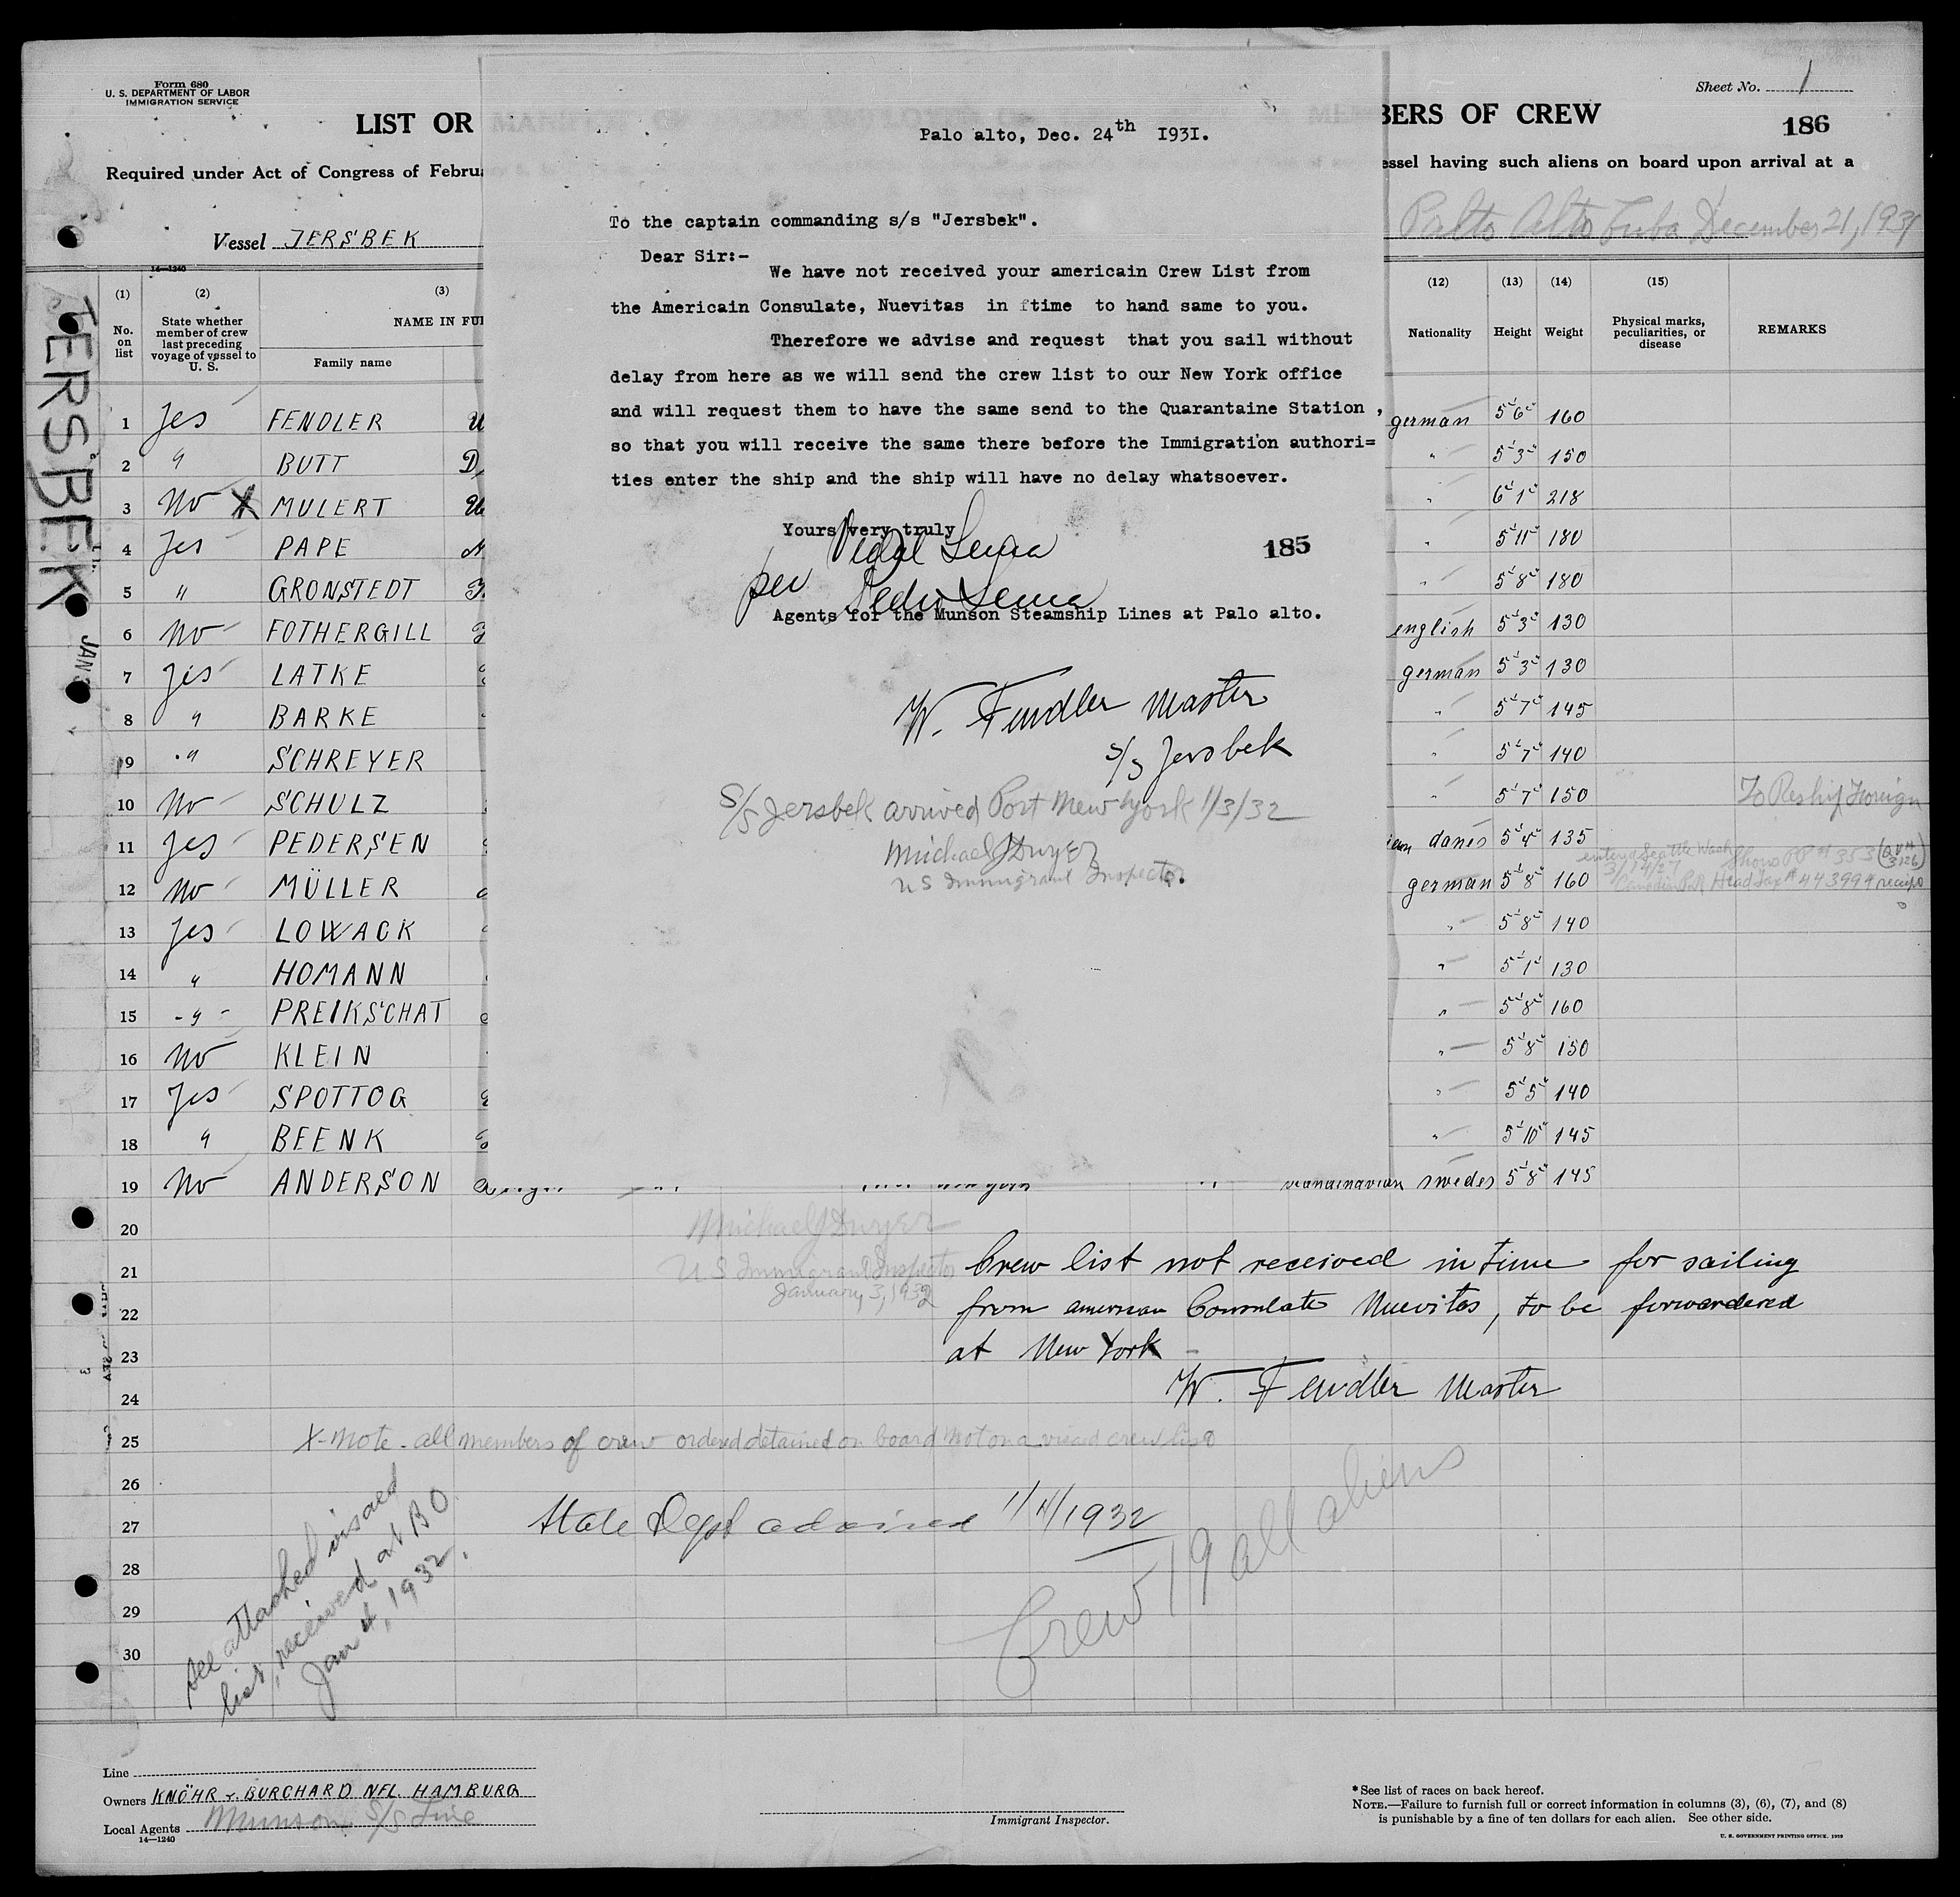 Form 680
U. S. DEPARTMENT OF LABOR
IMMIGRATION SERVICE
Sheet No. 1
LIST OR
BERS OF CREW
186
Required under Act of Congress of Februa
essel having such aliens on board upon arrival at a
Vessel JERSBEK
Palto Alto Cuba December 21, 1931
JERSBEK
Palo alto, Dec. 24th 1931.
To the captain commanding s/s "Jersbek".
Dear Sir:-
We have not received your americain Crew List from
the Americain Consulate, Nuevitas in time to hand same to you.
Therefore we advise and request that you sail without
delay from here as we will send the crew list to our New York office
and will request them to have the same send to the Quarantaine Station ,
so that you will receive the same there before the Immigration authori=
ties enter the ship and the ship will have no delay whatsoever.
Yours very truly
per
185
Agents for the Munson Steamship Lines at Palo alto.
W. Fendler Master
S/S Jersbek
S/S Jersbek arrived Port New York 1/3/32
Michael J Dwyer
US Immigrant Inspector.
14—1240
(1) (2) (3) (12) (13) (14) (15)
No. on list
State whether member of crew last preceding voyage of vessel to U. S.
NAME IN FUL
Family name
Nationality Height Weight
Physical marks, peculiarities, or disease
REMARKS
1 Jes FENDLER W german 5'6" 160
2 " BUTT D " 5'3" 150
3 No X MULERT W " 6'1" 218
4 Jes PAPE " 5'11" 180
5 " GRONSTEDT " 5'8" 180
6 No FOTHERGILL english 5'3" 130
7 Jes LATKE german 5'3" 130
8 " BARKE " 5'7" 145
9 " SCHREYER " 5'7" 140
10 No SCHULZ " 5'7" 150 To Reship Foreign
11 Jes PEDERSEN danes 5'4" 135
12 No MÜLLER german 5'8" 160
entered Seattle Wash
Head Tax # 443994 receipt
13 Jes LOWACK " 5'8" 140
14 " HOMANN " 5'1" 130
15 - " - PREIKSCHAT " 5'8" 160
16 No KLEIN " 5'8" 150
17 Jes SPOTTOG " 5'5" 140
18 " BEENK " 5'10" 145
19 No ANDERSON scandinavian swedes 5'8" 145
20
21
22
23
24
25
26
27
28
29
30
Michael J Dwyer
U S Immigrant Inspector
January 3, 1932
Crew list not received in time for sailing
from american Consulate Nuevitas, to be forwardered
at New York -
W. Fendler Master
X-Note - all members of crew ordered detained on board not on a visaed crew list
State Dept advised 1/4/1932
Crew 19 all aliens
See attached visaed
list, received at B O
Jan 4, 1932.
Line
Owners KNÖHR & BURCHARD NFL. HAMBURG
Local Agents Munson S/S Line
14—1240
Immigrant Inspector.
* See list of races on back hereof.
NOTE.—Failure to furnish full or correct information in columns (3), (6), (7), and (8)
is punishable by a fine of ten dollars for each alien. See other side.
U. S. GOVERNMENT PRINTING OFFICE